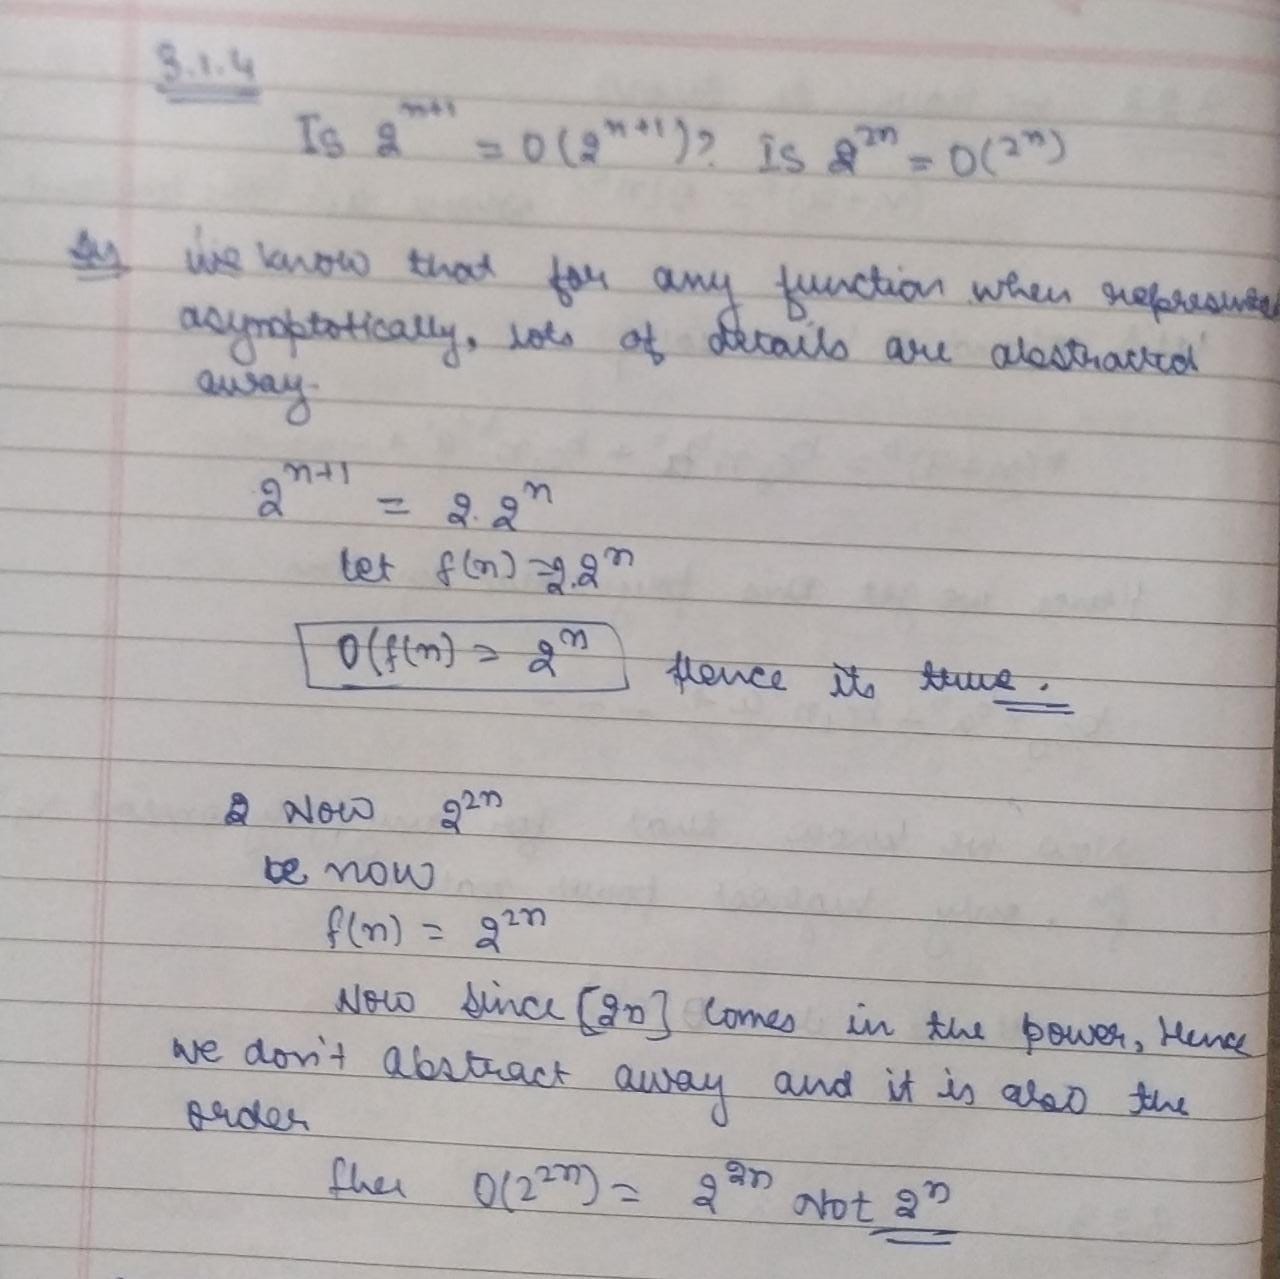 3.1.4
Is 2^{n+1} = O(2^{n+1})? is 2^{2n} = O(2^n)
we know that for any function when
asymptotically, lots of details are abstracted
away.
2^{n+1} = 2.2^n
let f(n) = 2.2^n
O(f(n) = 2^n Hence its true.
2 Now 2^{2n}
be now
f(n) = 2^{2n}
Now since [2n] comes in the power, Hence
we don't abstract away and it is also the
order
O(2^{2n}) = 2^{2n} Not 2^n